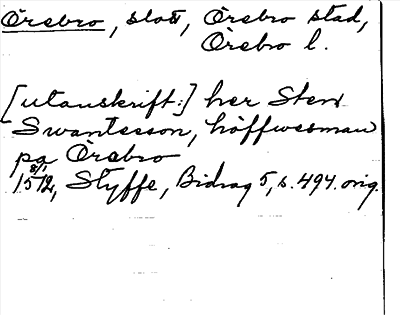 Örebro, slott, Örebro stad,
Örebro l.
[utanskrift:] her Sten
Swantesson, höffwesman
pa Örebro
8/1
1512, Styffe, Bidrag 5, s. 494. orig.